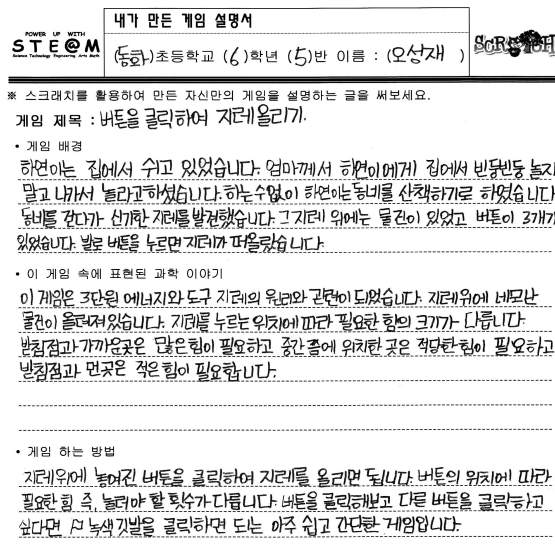 내가 만든 게임 설명서
POWER UP WITH
STE@M
Science Technology Engineering Arts Math
(동화)초등학교 (6)학년 (5)반 이름 : (오성재 )
SCRATCH
※ 스크래치를 활용하여 만든 자신만의 게임을 설명하는 글을 써보세요.
게임 제목 : 버튼을 클릭하여 지레올리기.
• 게임 배경
하연이는 집에서 쉬고 있었습니다. 엄마께서 하연이에게 집에서 빈둥빈둥 놀지
말고 나가서 놀라고하셨습니다. 하는수없이 하연이는 동네를 산책하기로 하였습니다
동네를 걷다가 신기한 지레를 발견했습니다. 그 지레 위에는 물건이 있었고 버튼이 3개가
있었습니다. 발로 버튼을 누르면 지레가 떠올랐습니다.
• 이 게임 속에 표현된 과학 이야기
이 게임은 3단원 에너지와 도구 지레의 원리와 관련이 되었습니다. 지레위에 네모난
물건이 올려져있습니다. 지레를 누르는 위치에 따라 필요한 힘의 크기가 다릅니다.
받침점과 가까운곳은 많은 힘이 필요하고 중간 쯤에 위치한 곳은 적당한 힘이 필요하고
받침점과 먼곳은 적은 힘이 필요합니다.
• 게임 하는 방법
지레위에 놓여진 버튼을 클릭하여 지레를 올리면 됩니다. 버튼의 위치에 따라
필요한 힘 즉, 눌러야 할 횟수가 다릅니다. 버튼을 클릭해보고 다른 버튼을 클릭하고
싶다면 녹색깃발을 클릭하면 되는 아주 쉽고 간단한 게임입니다.